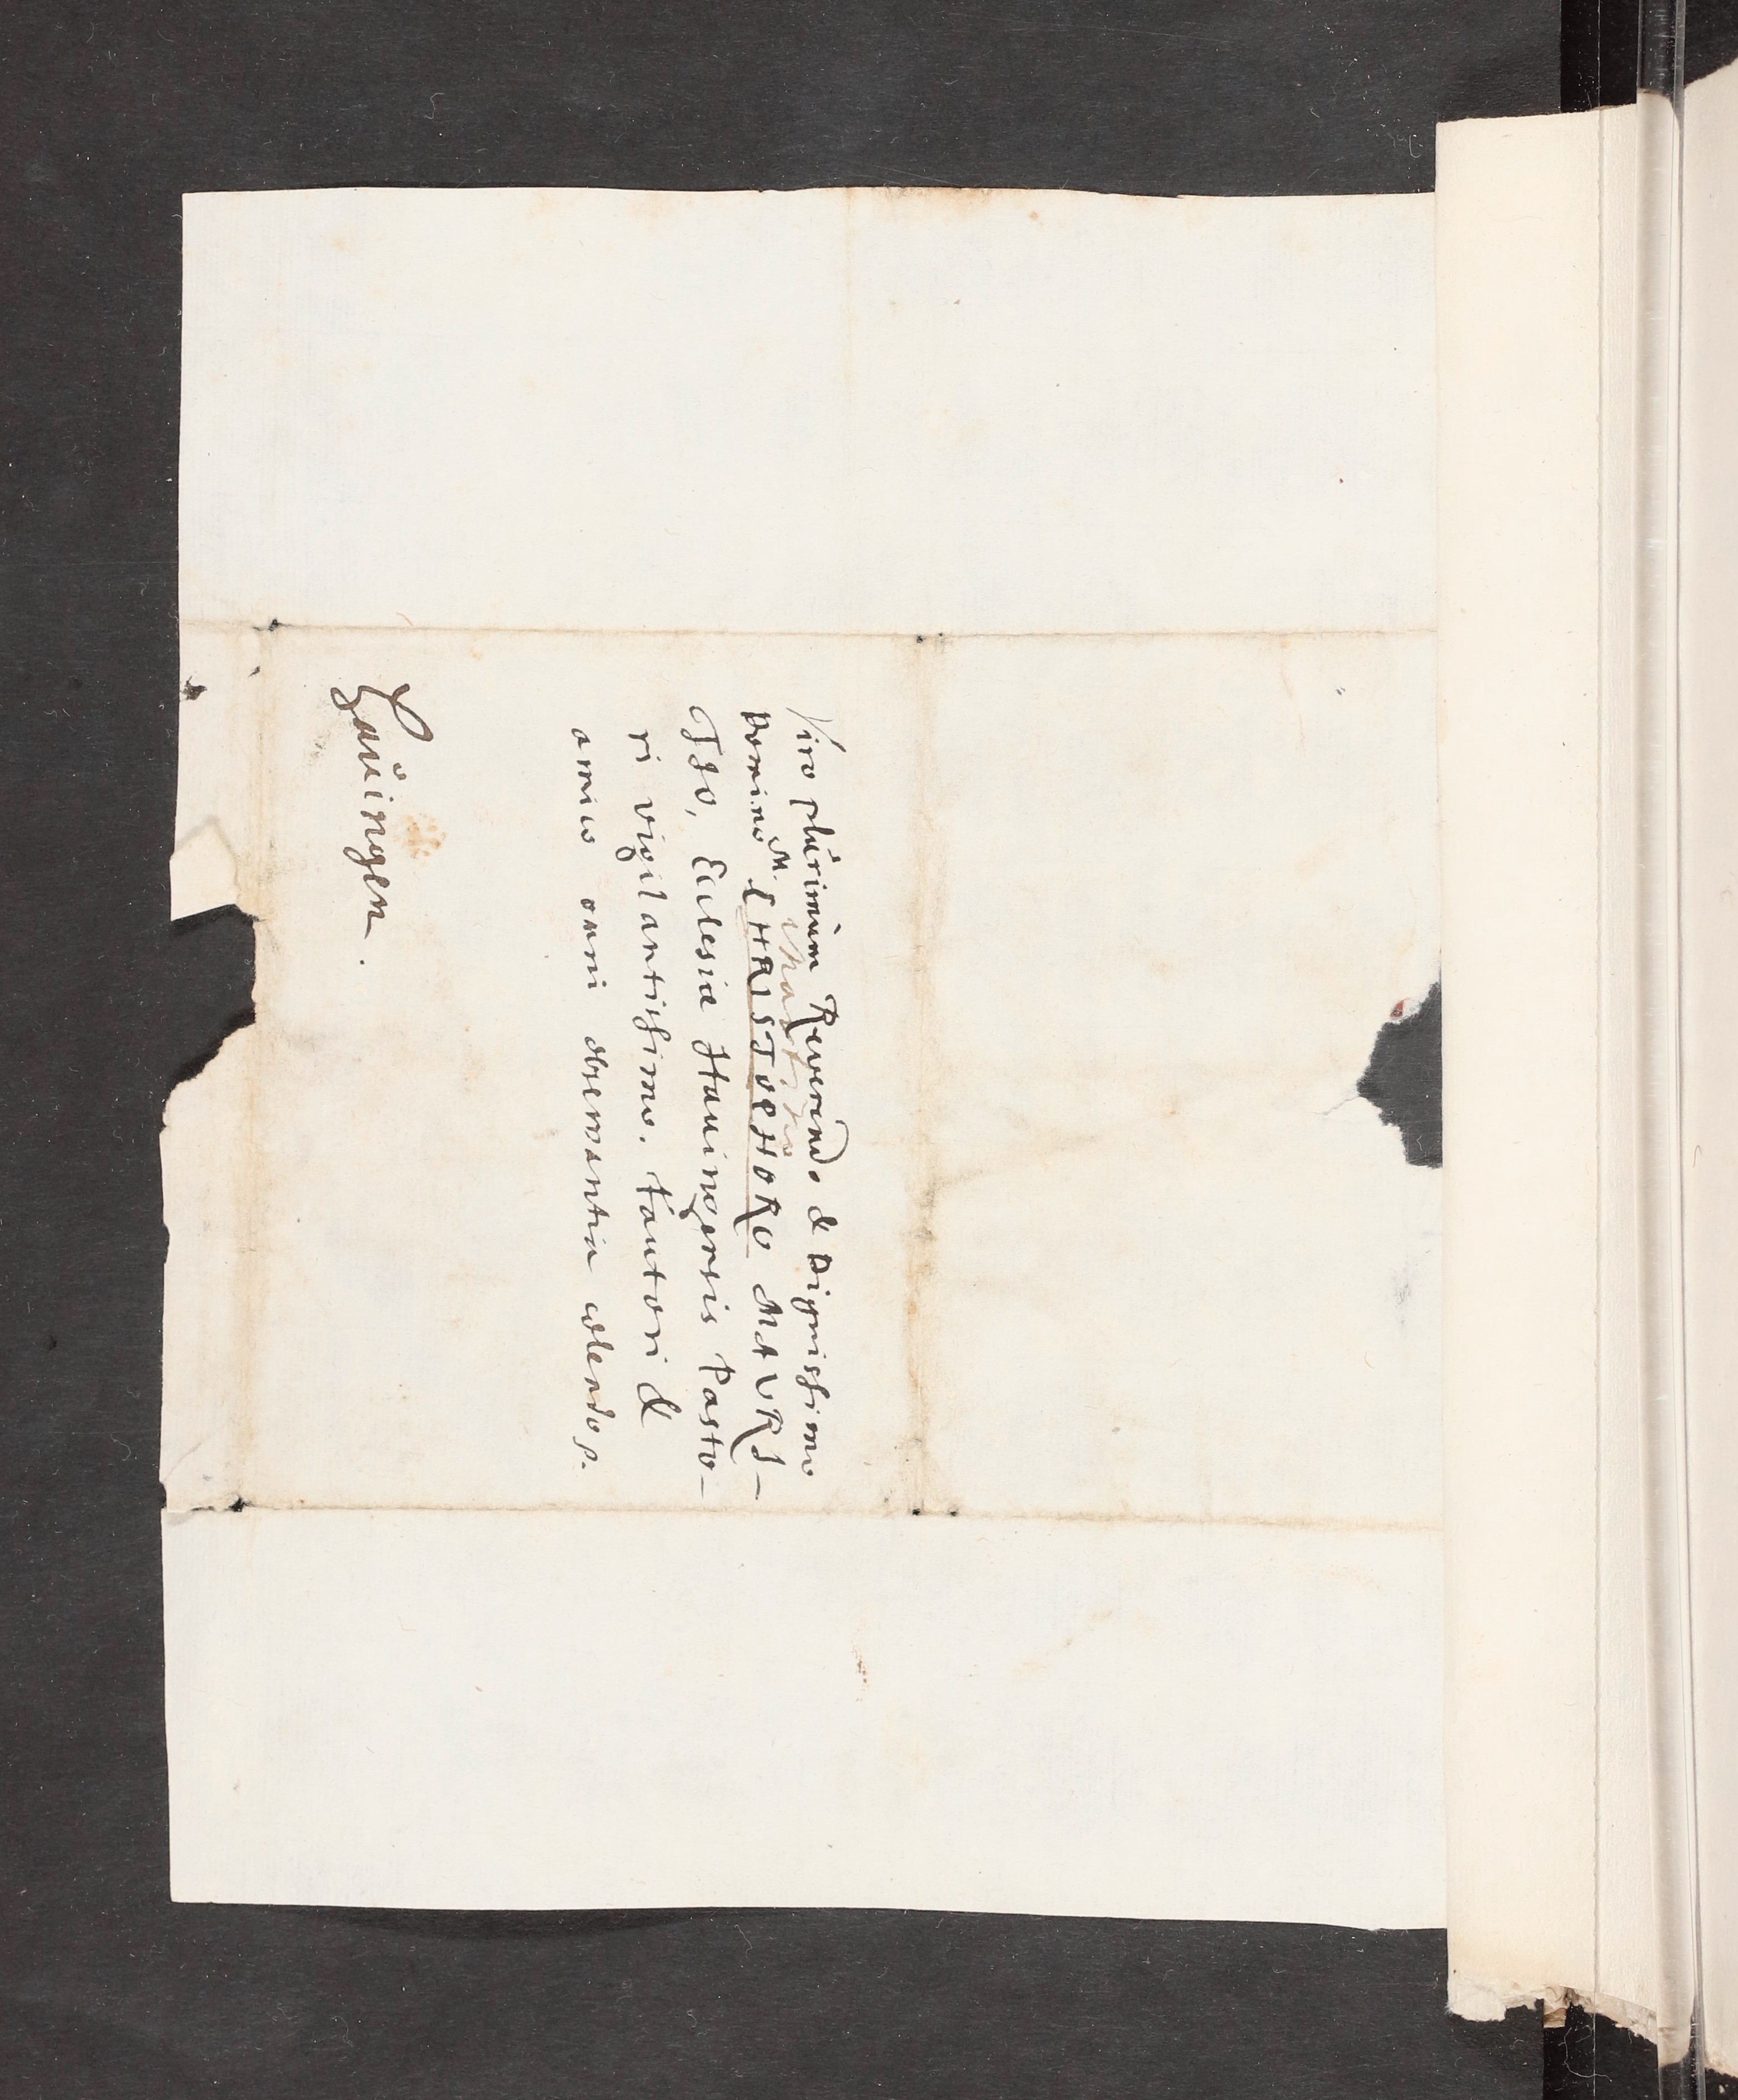 Viro plurimùm Reverendo & Dignissimo
Domino M. CHRISTOPHORO MAVRI-
Matthæo
TIO, Ecclesiæ Hauingensis Pasto-
ri vigilantissimo, Fautori &
amico omni observantia colendo p.
Lauingen.